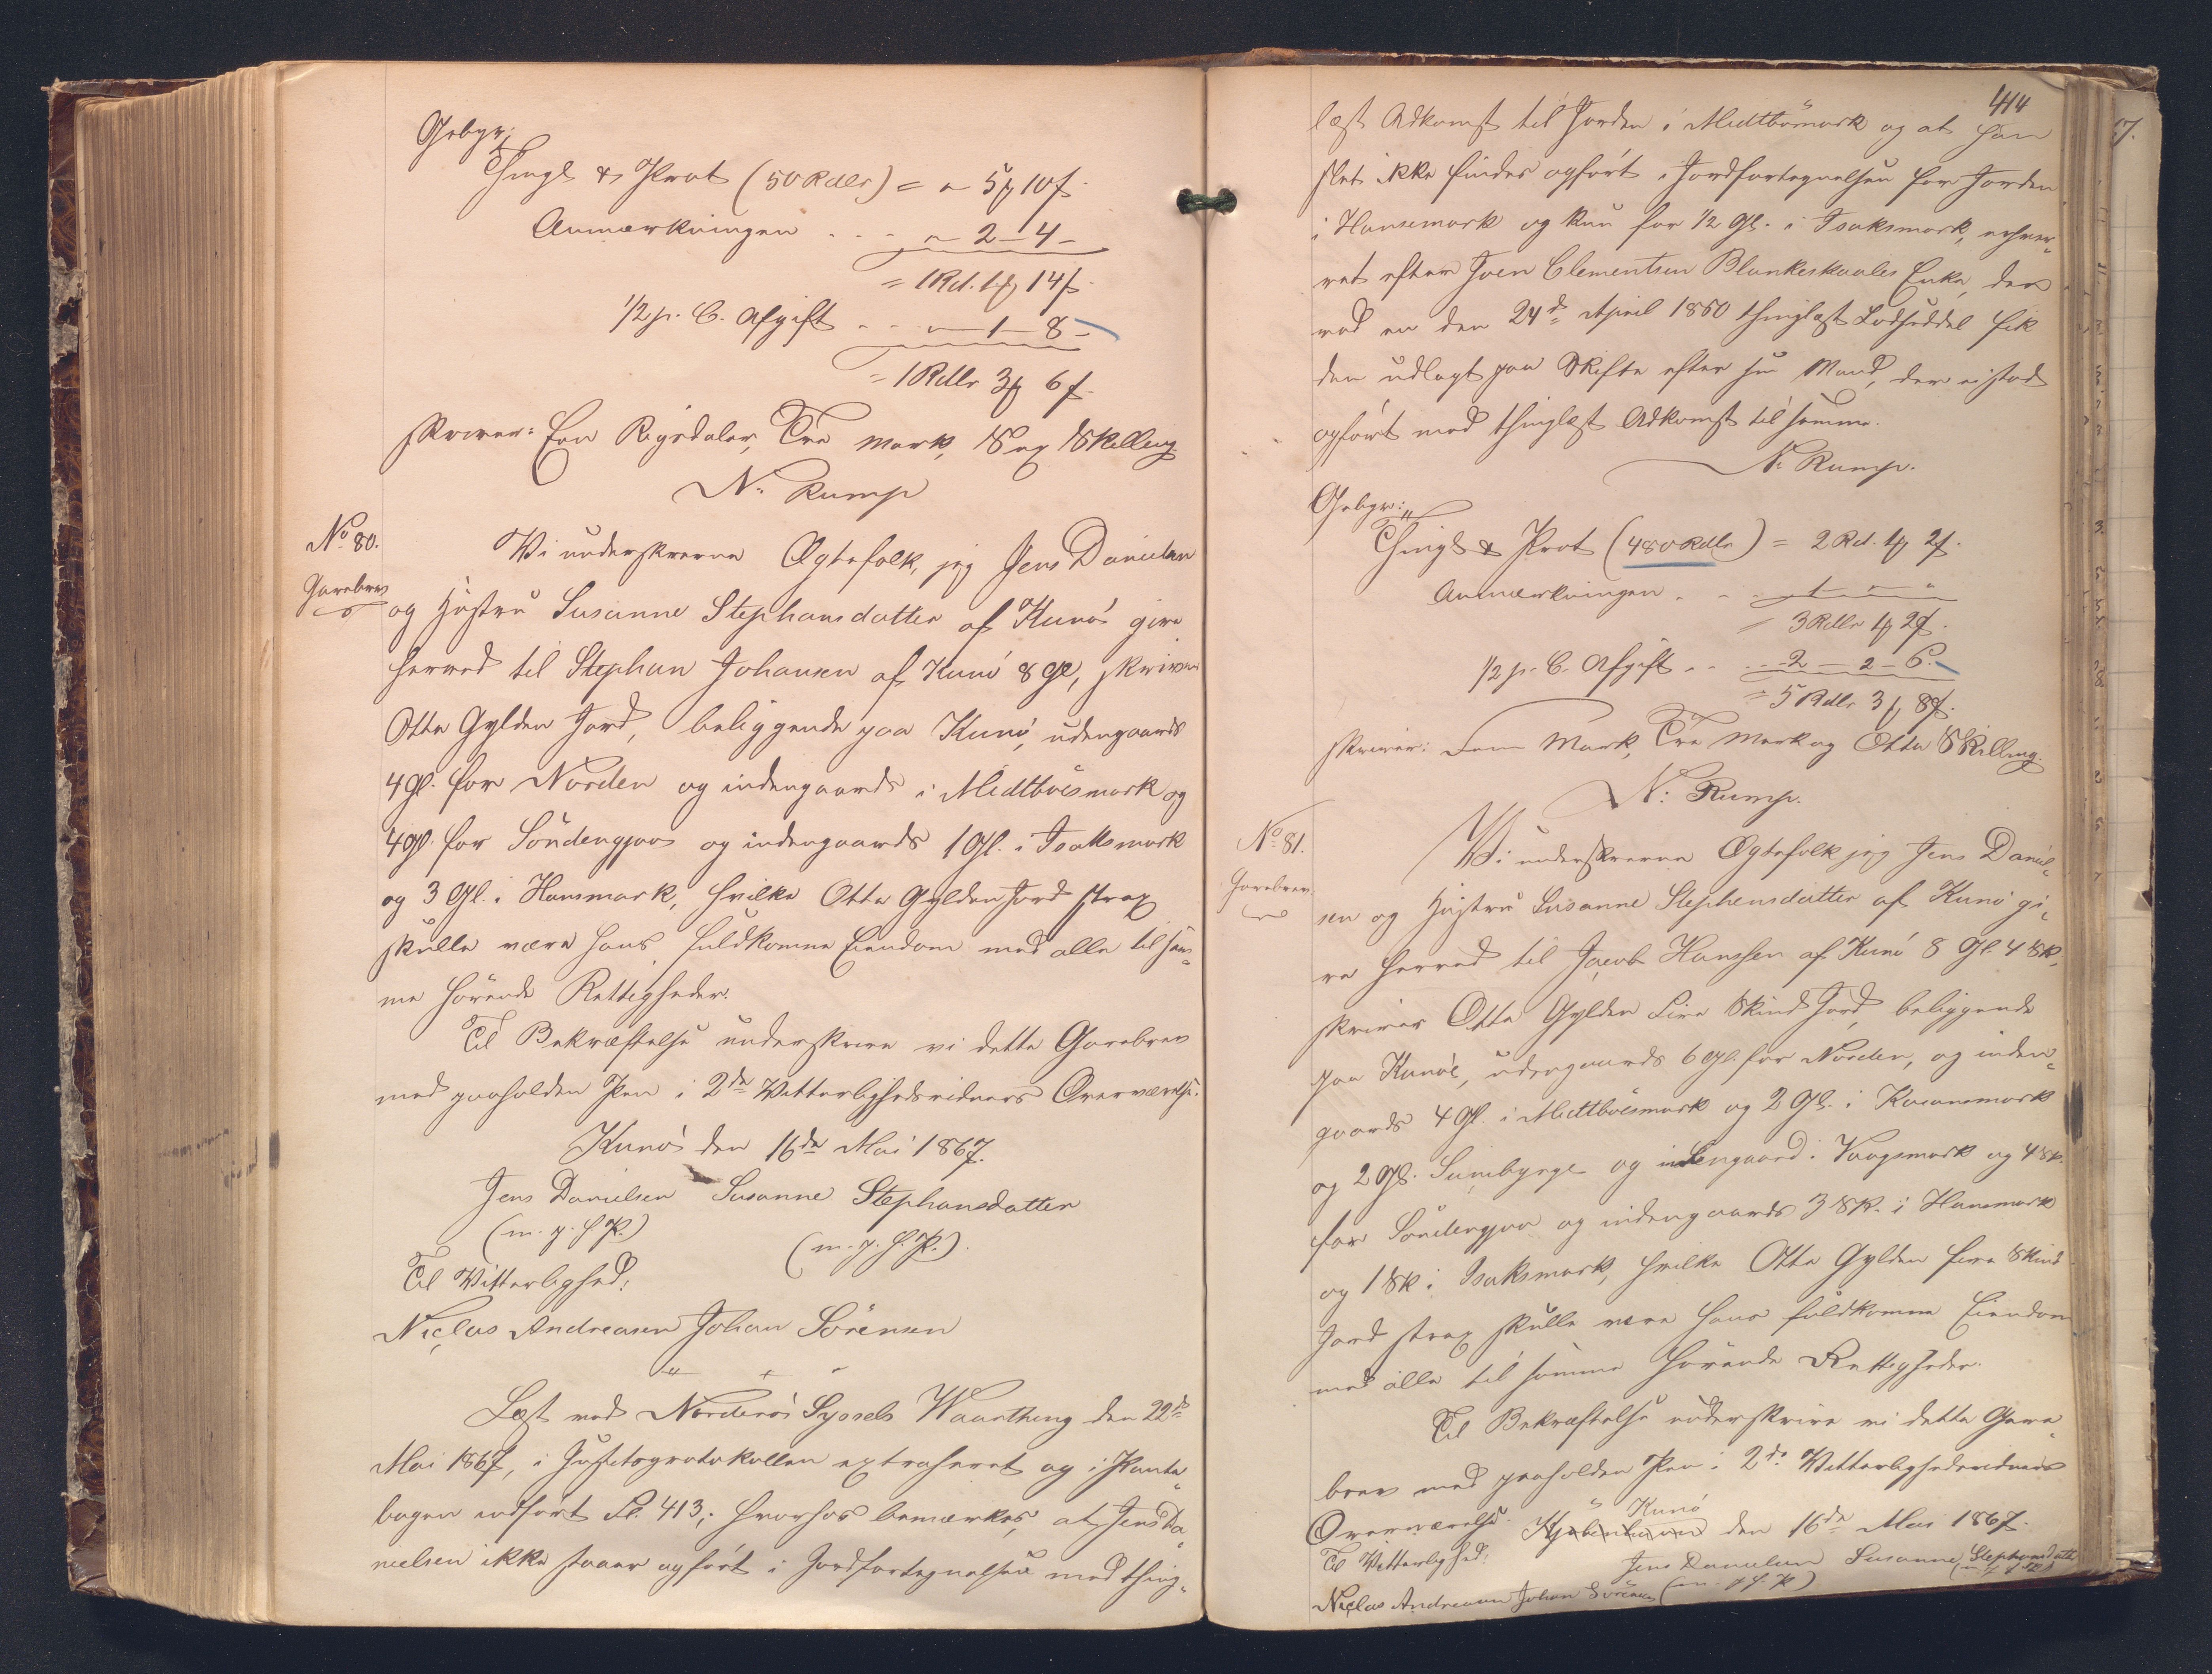 Gebyr:
Thingl & Prot (50 Rdlr) = " 5 ꝑ 10 ß.
Anmærkningen . . . " 2 - 4 -
= 1 Rd. 1 ꝑ 14 ß.
1/2 p. C. Afgift . . . " - 1 - 8 -
= 1 Rdlr 3 ꝑ 6 ß.
skriver: Een Rigsdaler, Tre Mark, Sex Skilling
N. Rump
No 80.
Gavebrev
Vi underskrevne Ægtefolk, jeg Jens Danielsen
og Hustru Susanne Stephansdatter af Kunø give
herved til Stephan Johansen af Kunø 8 Gl, skriver
Otte Gylden Jord, beliggende paa Kunø, udengaards
4 Gl. for Norden og indengaards i Midtbøismark og
4 Gl. for Søndengjov og indengaards 1 Gl. i Isaksmark
og 3 Gl. i Hansmark, hvilke Otte Gylden Jord strax
skulle være hans fuldkomne Eiendom med alle til sam-
me hørende Rettigheder.
Til Bekræftelse underskrive vi dette Gavebrev
med paaholden Pen i 2de Vitterlighedsvidners Overværelse.
Kunø den 16de Mai 1867.
Jens Danielsen Susanne Stephansdatter
(m. p. h. P.) (m. p. h. P.).
Til Vitterlighed:
Niclas Andreasen Johan Sørensen
" + "
Læst ved Norderø Syssels Vaarthing den 22de
Mai 1867, i Justitsprotokollen extraheret og i Pante-
bogen indført Fl. 413; hvorhos bemærkes, at Jens Da-
nielsen ikke staaer opført i Jordfortegnelsen med thing-
414
læst Adkomst til Jorden i Midtbømark og at han
slet ikke findes opført i Jordfortegnelsen for Jorden
i Hansemark og kun for 1/2 Gl. i Isaksmark, erhver-
vet efter Joen Clementsen Blankeskaales Enke, der
ved en den 24de April 1860 thinglæst Lodseddel fik
den udlagt paa Skifte efter sin Mand, der ei stod
opført med thinglæst Adkomst til samme.
N. Rump.
Gebyr:
Thingl & Prot (480 Rdlr) = 2 Rd. 1 ꝑ 2 ß.
Anmærkningen . . . 1 " "
3 Rdlr 1 ꝑ 2 ß.
1/2 p. C. Afgift . . . 2 - 2 - 6.
= 5 Rdlr 3 ꝑ 8 ß.
skriver: Fem Mark, Tre Mark og Otte Skilling.
N: Rump.
No 81.
Gavebrev.
Vi underskrevne Ægtefolk jeg Jens Daniel-
sen og Hustru Susanne Stephensdatter af Kunø gi-
ve herved til Jacob Hanssen af Kunø 8 Gl. 4 Sk,
skriver Otte Gylden Fire Skind Jord, beliggende
paa Kunøe, udengaards 6 Gl. for Norden, og inden-
gaards 4 Gl. i Midtbøismark og 2 Gl. i
og 2 Gl. og indengaard i Vaagsmark og 4 Sk.
for Søndengjov og indengaards 3 Sk. i Hansmark
og 1 Sk i Isaksmark, hvilke Otte Gylden fire Skind
Jord strax skulle være hans fuldkomne Eiendom
med alle til samme hørende Rettigheder.
Til Bekræftelse underskrive vi dette Gave-
brev med paaholden Pen i 2de Vitterlighedsvidners
Overværelse. Kjøbenhavn Kunø den 16de Mai 1867.
Til Vitterlighed: Jens Danielsen Susanne Stephansdatter
Niclas Andreasen Johan Sørensen (m. p. h. P.) (m. p. h. P.)